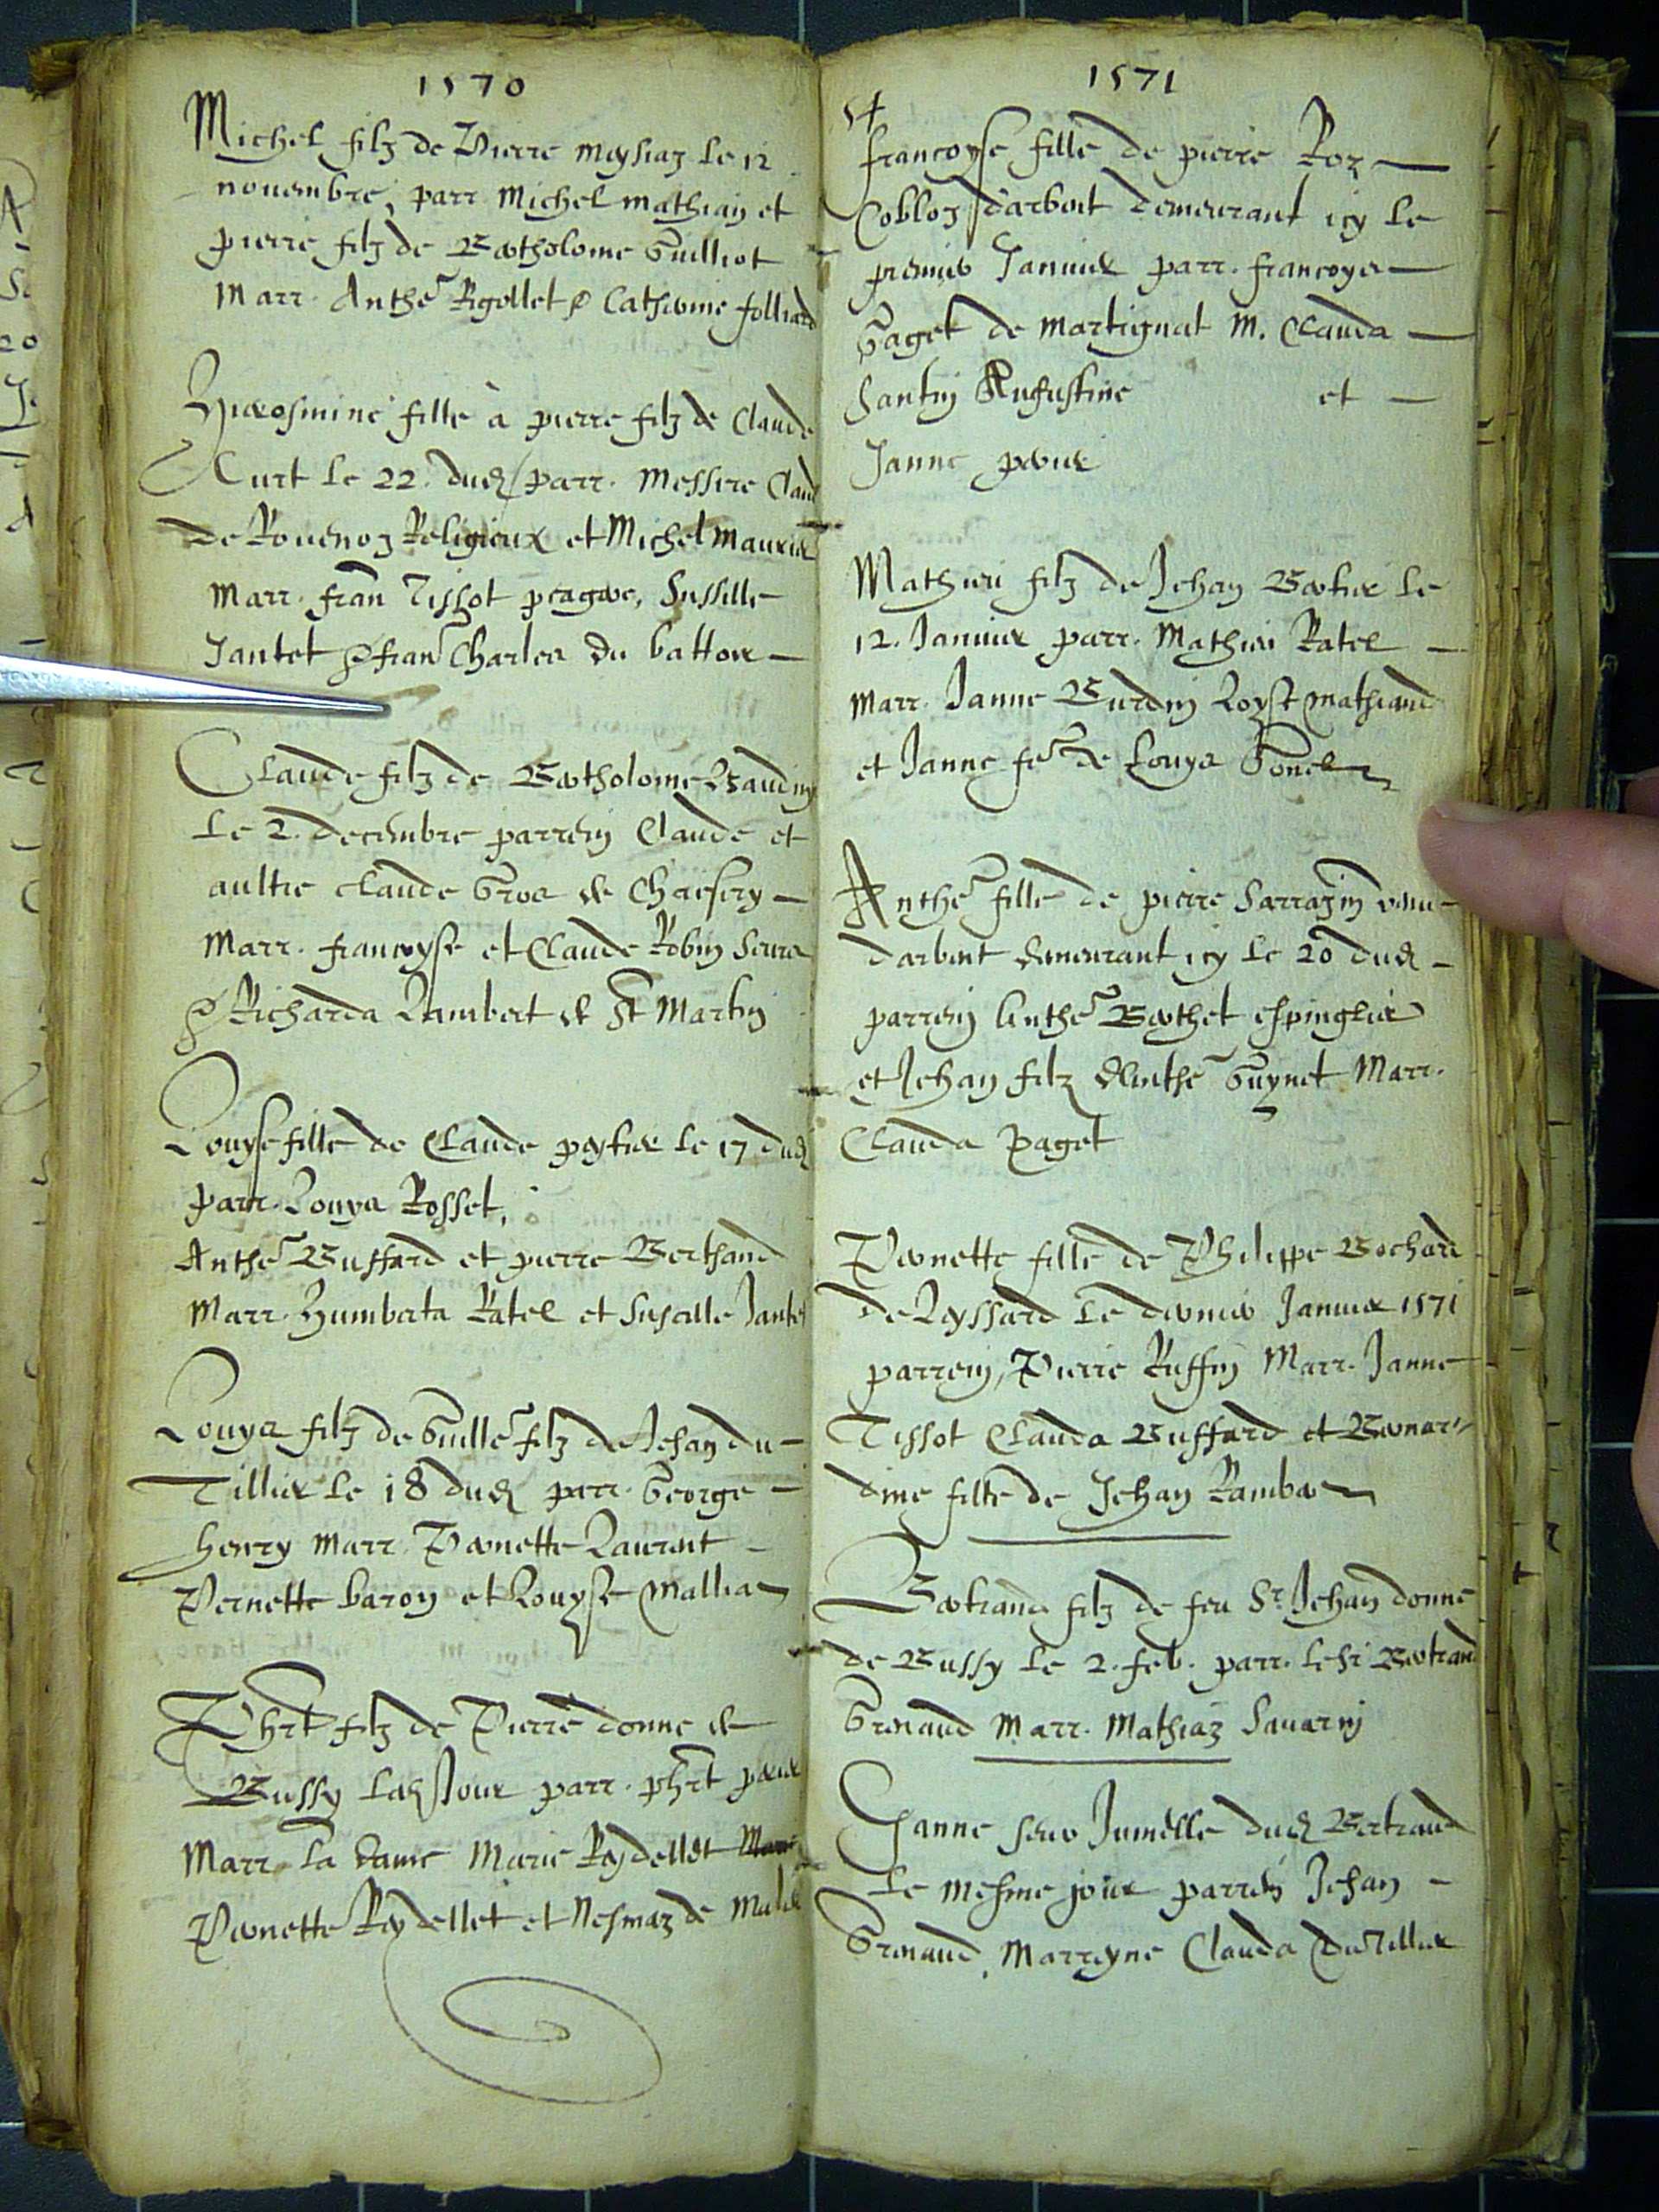 1570
Michel filz de Pierre meysiaz le 12
novembre, parr Michel mathian et
pierre filz de Bartholome Guilliot
Marr. Anthe Rgollet & Catherine folliard
Hierosmine fille à pierre filz de Claude
Curt le 22. dud parr. Messire Clau
de Rouenoz Religieux et Michel Maurier
Marr. fran Tissot Susille
Jantet & fran Charles du battoir
Claude filz de Bartholome Baudin
Le 2. decembre parrein Claude et
aultre claude Gros de Cheisery
Marr. francoyse et Claude Robin seurs
& Richarda Lambert de St Martin
Louyse fille de Claude peytier le 17 dud
Parr. Louys Rosset,
Anthe Buffard et pierre Berthand
Marr. Humberta Ratel et Susille Jantet
Louys filz de Guille filz de Jehan du
Tillier le 18 dud parr. George
henry Marr. Pernette Laurent
Pernette baron et Louyse Mallian
Phrt filz de Pierre donne de
Bussy led Jour parr. phrt perier
Marr. La dame Marie Reydellet
Pernette Reydellet et Nesmaz de
1571
francoyse fille de pierre Roz
Cobloz darbent demeurant icy le
premier Janvier parr. francoys
Gaget de martignat M. Clauda
Santin Augustine et
Janne perier
Mathieu filz de Jehan Bertier le
12. Janvier parr. Mathieu Ratel
Marr. Janne Burdin Loyse mathiand
et Janne fe de Louys Gonel
Anthe fille de pierre Sarrazin
darbent demeurant icy le 20 dud
parrein Anthe Berthet espinglier
et Jehan filz dAnthe Guynet Marr.
Clauda Paget
Pernette fille de Philippe Bochard
de Leyssard le dernier Janvier 1571
parrein, Pierre Ruffin Marr. Janne
Tissot Clauda Buffard et Bernar
dine fille de Jehan Rambert
Bertrand filz de feu Sr. Jehan donne
de Bussy le 2. feb. parr. le sr Bertrand
Grenaud Marr. Mathiaz Savarin
Janne seur Jumelle dud Bertrand
Le mesme jour parrein Jehan
Grenaud, Marreyne Clauda du Tillier